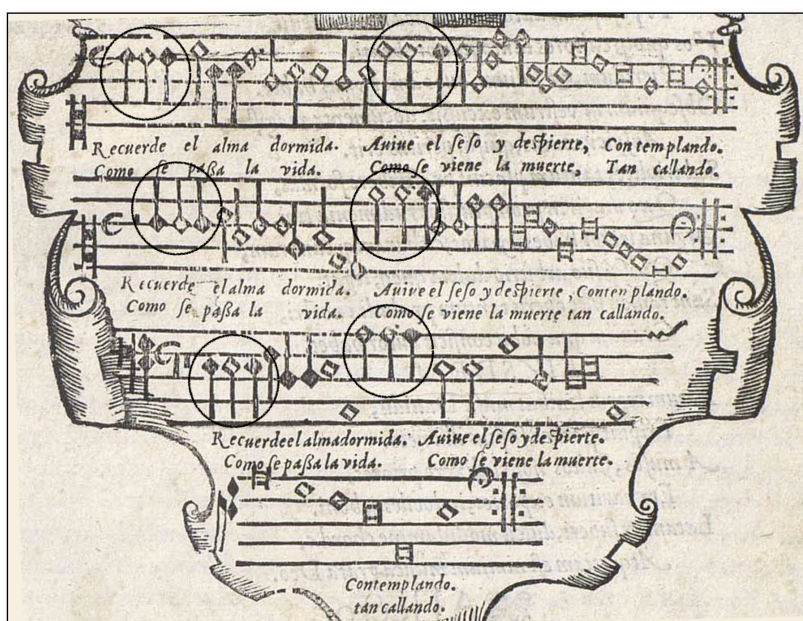 Recuerde el alma dormida. Auiue el seso y despierte, Contemplando.
Como se paßa la vida. Como se viene la muerte, Tan callando.
Recuerde el alma dormida. Auiue el seso y despierte, Contenplando.
Como se paßa la vida. Como se viene la muerte tan callando.
Recuerde el alma dormida. Auiue el seso y despierte.
Como se paßa la vida. Como se viene la muerte.
Contemplando.
tan callando.